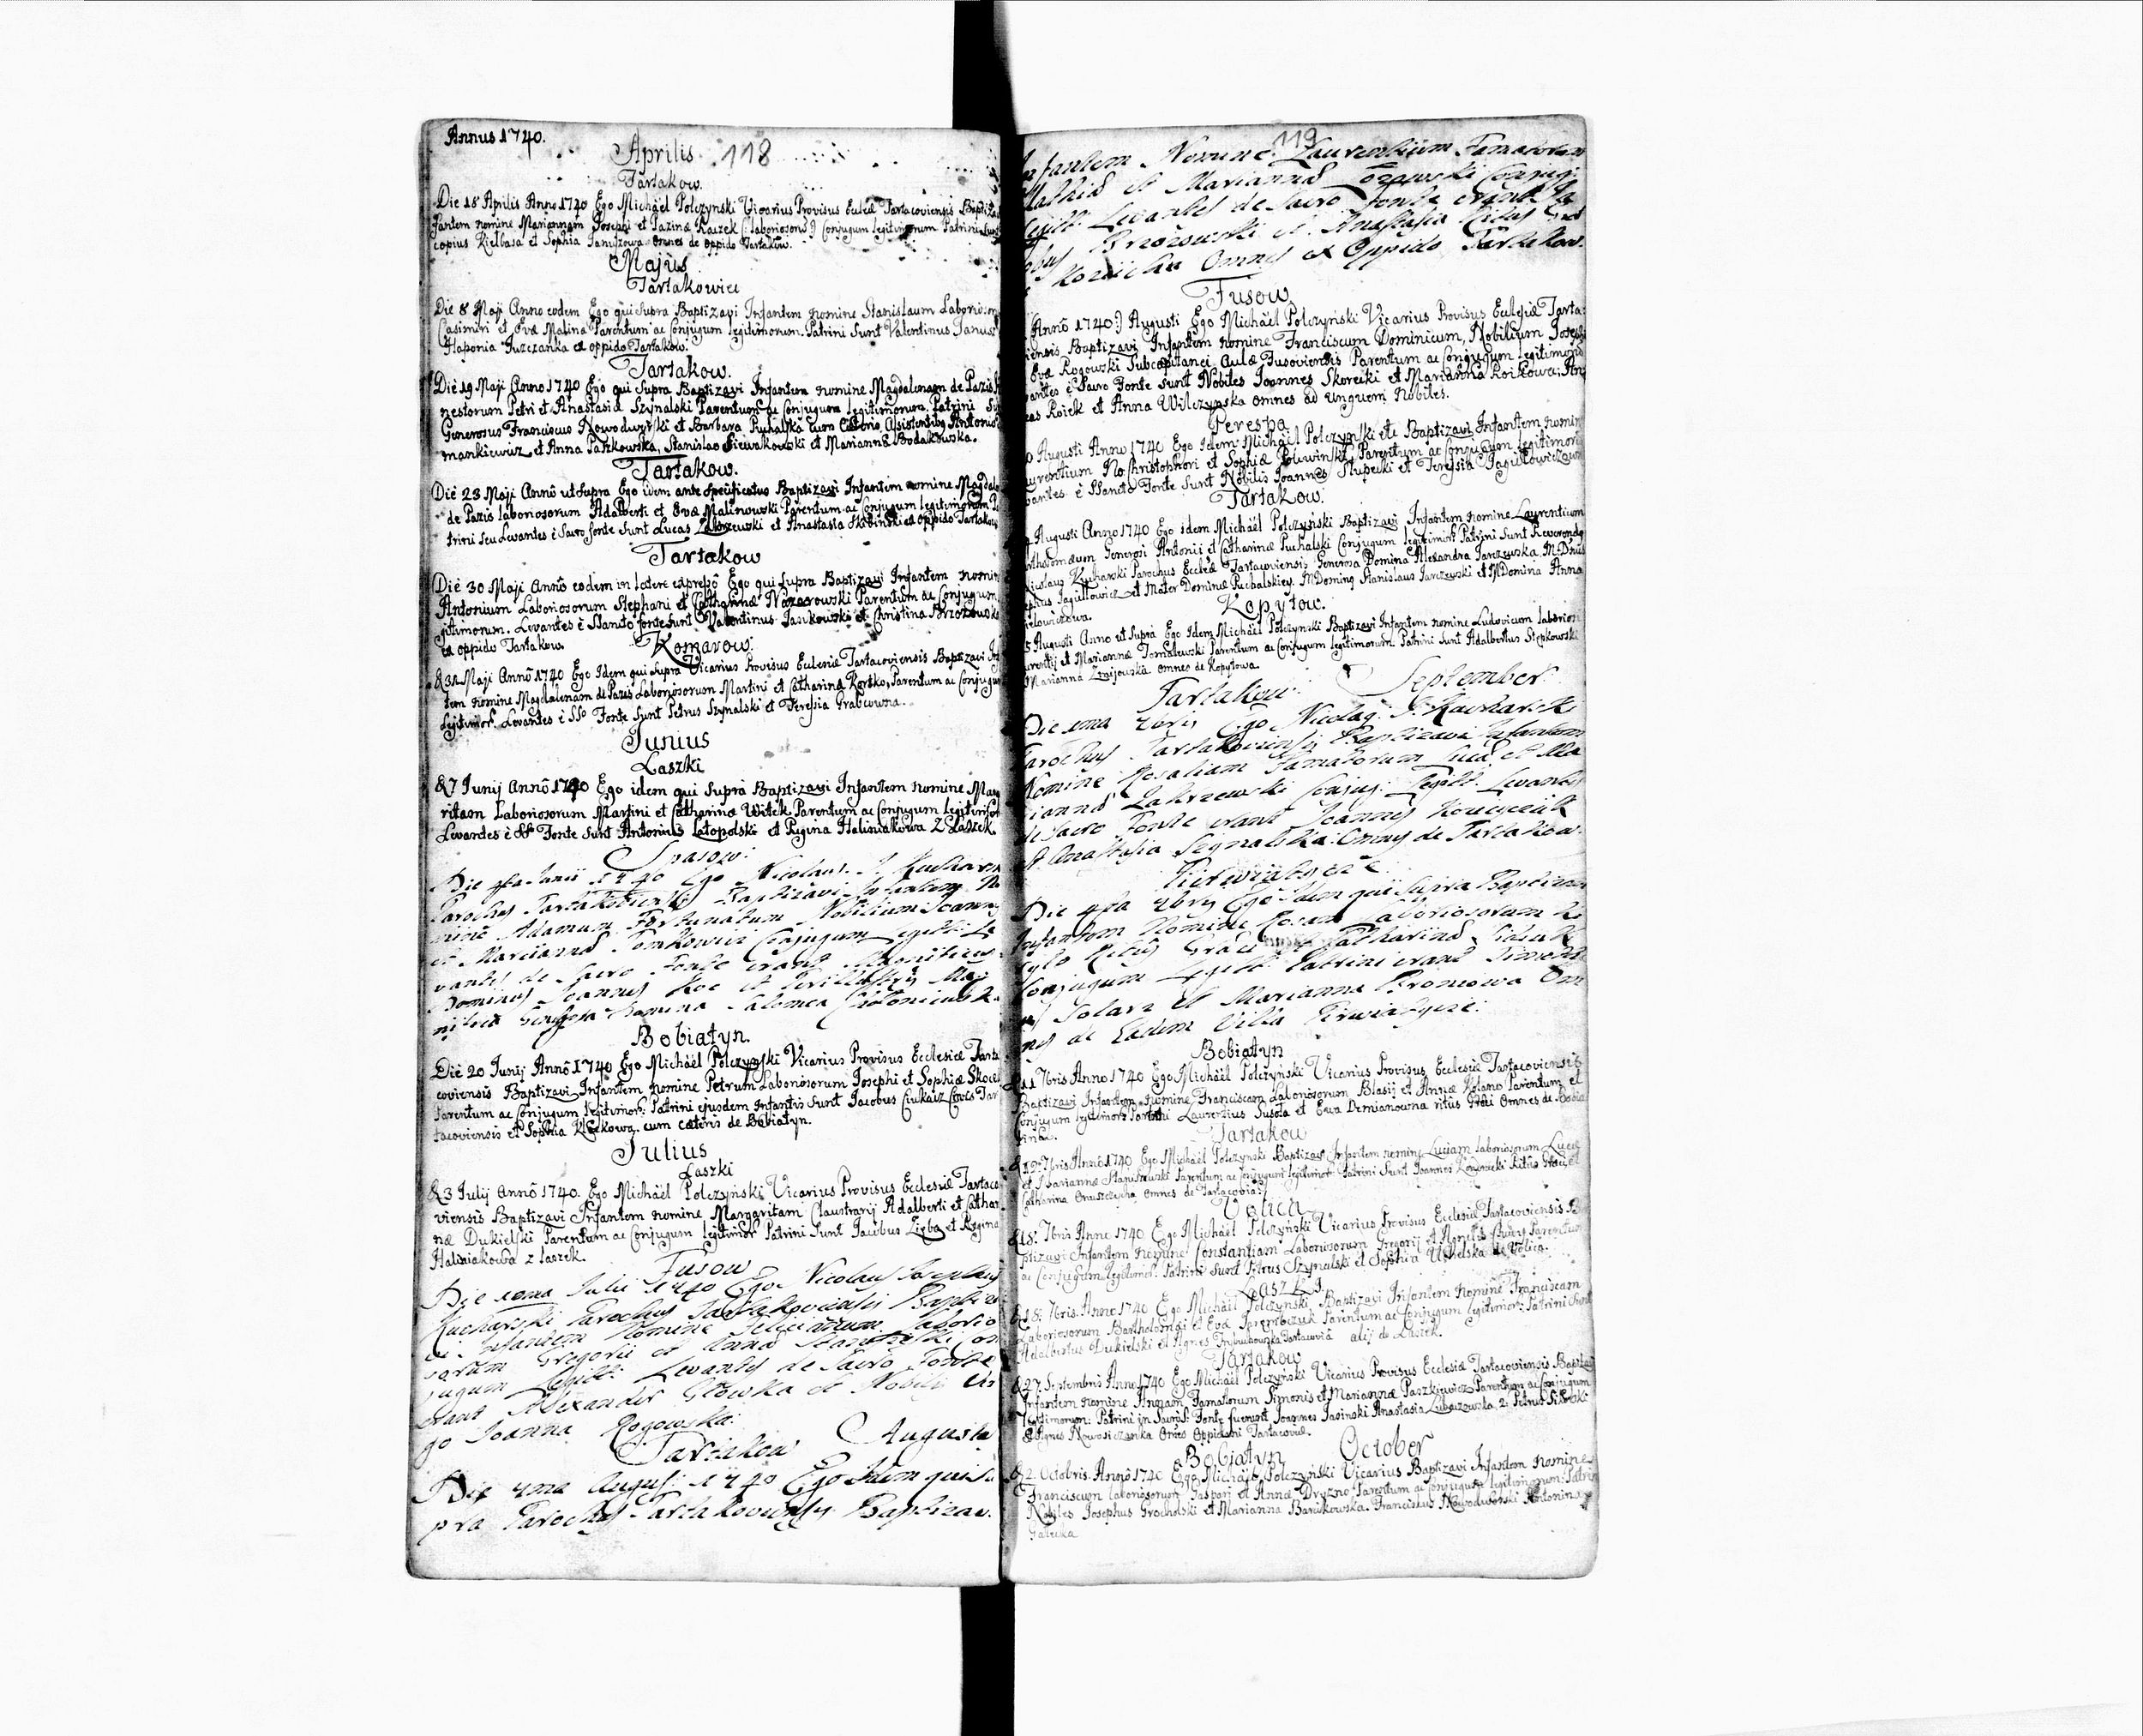 Annus 1740.
Aprilis. 118
Tartakow.
Die 18 Aprilis Anno 1740 Ego Michael Polczynski Vicarius Provisus Eccliæ Tartacoviensis Baptiza
fantem nomine Mariannam Josephi et Kaczek (: laboriosorū :) Conjugum legitimorum Patrini sunt
copius Kiełbasa et Sophia Omnes de oppido Tartakow.
Majus
Tartakowiec
Die 8 Maji Anno eodem Ego qui supra Baptizavi Infantem nomine Stanislaum Laborio:
Casimiri et Evæ Malina Parentum ac Conjugum legitimorum. Patrini Sunt Valentinus Janus
Haponia Juzczanka ex oppido Tartakow.
Tartakow.
Die 19 Maji Anno 1740 Ego qui Supra Baptizavi Infantem nomine Magdalenam de Pazis
nestorum Petri et Anastasiæ Szynalski Parentum ac Conjugum legitimorum. Patrini Su
Generosus Franciscus Nowodworski et Barbara Puchalska cum Assistentibq Antonio
mankiewicz et Anna Paszkowska, Stanislao Siewakowski et Marianna Bodakowska.
Tartakow.
Die 23 Maji Annô ut Supra Ego idem ante specificatus Baptizavi Infantem nomine Magdale
de Pazis laboriosorum Adalberti et Evæ Malinowski Parentum ac Conjugum legitimorum Pa
trini seu Levantes è Sacro fonte Sunt Lucas Zakrzewski et Anastasia Skibinski ex oppido Tartakow
Tartakow
Die 30 Maji Annô eodem in latere expressô Ego qui supra Baptizavi Infantem nomin
Antonium Laboriosorum Stephani et Catharinæ Nazarowski Parentum ac Conjugum
gitimorum. Levantes è SSancto fonte sunt Valentinus Jasikowski et Christina Brzozowsk
ex oppido Tartakow.
Komarow.
& 31 Maji Annô 1740 Ego Idem qui supra Vicarius Provisus Eclesiæ Tartacoviensis Baptizavi In
tem nomine Magdalenam de Pazis Laboriosorum Martini et Catharinæ Kortko, Parentum ac Conjug
Legitimor. Levantes è SSo Fonte Sunt Petrus Szynalski et Teressia Grabcowna.
Junius
Łaszki
& 7 Junij Annô 1740 Ego idem qui supra Baptizavi Infantem nomine Mar
ritam Laboriosorum Martini et Catharinæ Witek Parentum ac Conjugum legitimor
Levantes è SSo Fonte Sunt Antonius Latopolski et Regina Haliniakowa Z Łaszek
Spasow:
Die Junii 1740 Ego Nicolaus J. Kucharsk
Parochus Tartakoviensis Baptizavi Infantem No
mine Adamum Fortunatum Nobilium Joannis
et Mariannæ Tomkowicz Conjugum Legitt: Le
vantes de Sacro Fonte erant Magnificus
Dominus Joannes Koc et Perillustris Mag
Domina Salomea
Bobiatyn.
Die 20 Junij Annô 1740 Ego Michaël Polczynski Vicarius Provisus Ecclesiæ Tarta
coviensis Baptizavi Infantem nomine Petrum Laboriosorum Josephi et Sophiæ Skocz
Parentum ac Conjugum legitimor: Patrini ejusdem Infantis Sunt Jacobus Cives Tar
tacoviensis et Sophia Kleckowa. cum cæteris de Bobiatyn.
Julius
Łaszki
& 3 Julij Annô 1740. Ego Michaël Polczyński Vicarius Provisus Ecclesiæ Tartaco
viensis Baptizavi Infantem nomine Margaritam Claustrarij Adalberti et Cathar
næ Dukielski Parentum ac Conjugum legitimor Patrini Sunt Jacobus Zięba et Regina
Haliniakowa z Łaszek.
Fusow
Die Julii 1740 Ego Nicolaus Josephus
Kucharski Parochus Tartakoviensis Baptiza
vi Infantem Nomine Felicianum Laborio
sorum Gregorii et Annæ Con
jugum Legitt: Levantes de Sacro Fonte
erant Alexander Głowka et Nobilis Vir
go Joanna Rogowska.
Tartakow Augusta
Die Augusti 1740 Ego Idem qui su
pra Parochus Tartakoviensis Baptizav.
119
Infantem Nomine Laurentium Famatorum
Mathiæ et Mariannæ Conjug:
Legitt. Levantes de Sacro Fonte erant Ja
Brzozowski et Anastasia Ritus
Omnes ex Oppido Tartakow.
Fusow
Annô 1740:) Augusti Ego Michaël Polczyński Vicarius Provisus Ecclesiæ Tarta:
iensis Baptizavi Infantem nomine Franciscum Dominicum, Nobilium Josephi
Evæ Rogowski Subcapitanei Aulæ Fusoviensis Parentum ac Conjugum legitimorū
antes è Sacro Fonte Sunt Nobiles Joannes Skorecki et Marianna An
as Roiek et Anna Wilczynska omnes ad unguem Nobiles.
Perespa
Augusti Anno 1740 Ego Idem Michaël Polczynski etc Baptizavi Infantem nomin
urentium No Christophori et Sophiæ Parentum ac Conjugum legitimor
vantes è SSancto Fonte Sunt Nobilis Joannes Słupecki et Teressia Jagiełłowiczow
Tartakow.
Augusti Anno 1740 Ego idem Michaël Polczyński Baptizavi Infantem nomine Laurentium
rtholomæum Generosi Antonii et Catharinæ Puchalski Conjugum legitimor. Patrini Sunt Reverendq
icolaus Kucharski Parochus Eccliæ Tartacoviensis Generosa Domina Alexandra Jarczewska. M.Dnus
ephus Jagiełłowicz et Mater Dominæ Puchalskiey. MDominq Stanislaus Jarczewski et MDomina Anna
iełłowiczowa.
Kopytow.
5 Augusti Anno ut supra Ego Idem Michaël Polczynski Baptizavi Infantem nomine Ludovicum laborios
urentij et Mariannæ Tomaszewski Parentum ac Conjugum legitimorum. Patrini Sunt Adalbertus Stępkowski
Marianna Zmijowska omnes de Kopytowa.
Tartakow: September.
Die 1ma 7bris Ego Nicolaq: J. Kucharski
Parochus Tartakoviensis Baptizavi Infantem
Nomine Rosaliam Famatorum Lucæ et Ma
riannæ Zakrzewski Conjug: Legitt: Levantes
de Sacro Fonte erant Joannes
et Anastasia Szynalska: Omnes de Tartakow.

Die 4ta 7bris Ego Idem qui supra Baptizavi
Infantem Nomine Rosam Laboriosorum
Ritus Græci et Catharinæ
Conjugum Legitt. Patrini erant Simon
Solarz et Marianna Bromowa Om
nes de Eadem Villa
Bobiatyn
& 11 7bris Anno 1740 Ego Michaël Polczyński Vicarius Provisus Ecclesiæ Tartacoviensis
Baptizavi Infantem nomine Franciscam Laboriosorum Blasij et Annæ Parentum et
Conjugum legitimor: Patrini Laurentius Susoła et Ewa Demianowna ritûs Græci Omnes de Bobia
tinka.
Tartakow
& 12 7bris Annô 1740 Ego Michaël Polczynski Baptizavi Infantem nomine Luciam laboriosorum Lucæ
et Mariannæ Staniszewski Parentum ac Conjugum legitimor. Patrini Sunt Joannes Ritus Græci et
Catharina Omnes de Tartacovia:/
Volica
& 18: 7bris Anno 1740 Ego Michaël Polczyński Vicarius Provisus Ecclesiæ Tartacoviensis Ba
ptizavi Infantem nomine Constantiam Laboriosorum Gregorij et Agnetis Parentum
ac Conjugum legitimor: Patrini Sunt Petrus Szynalski et Sophia de Volica.
Łaszki
& 18: 7bris. Anno 1740 Ego Michaël Polczynski Baptizavi Infantem nomine Franciscam
Laboriosorum Bartholomæi et Evæ Parentum ac Conjugum legitimor: Patrini Sunt
Adalbertus Dukielski et Agnes Tartacoviâ alij de Łaszek.
Tartakow
& 27. Septembris Anno 1740 Ego Michaël Polczyński Vicarius Provisus Ecclesiæ Tartacoviensis Baptizavi
Infantem nomine Annam Famatorum Simonis et Mariannæ Paszkiewicz Parentum ac Conjugum
legitimorum: Patrini in Fonte fuerunt Joannes Jasinski Anastasia 2. Petrus Sikorski
& Agnes Omes Oppidani Tartacoviæ.
Bobiatyn October
& 2. Octobris. Annô 1740 Ego Michaël Polczyński Vicarius Baptizavi Infantem nomine
Franciscum laboriosorum Caspari et Annæ Dryzno Parentum ac Conjugum legitimorum: Patrin
Nobiles Josephus Grocholski et Marianna Baruikowska. Franciscus Nowodworski Antonina
Gałecka